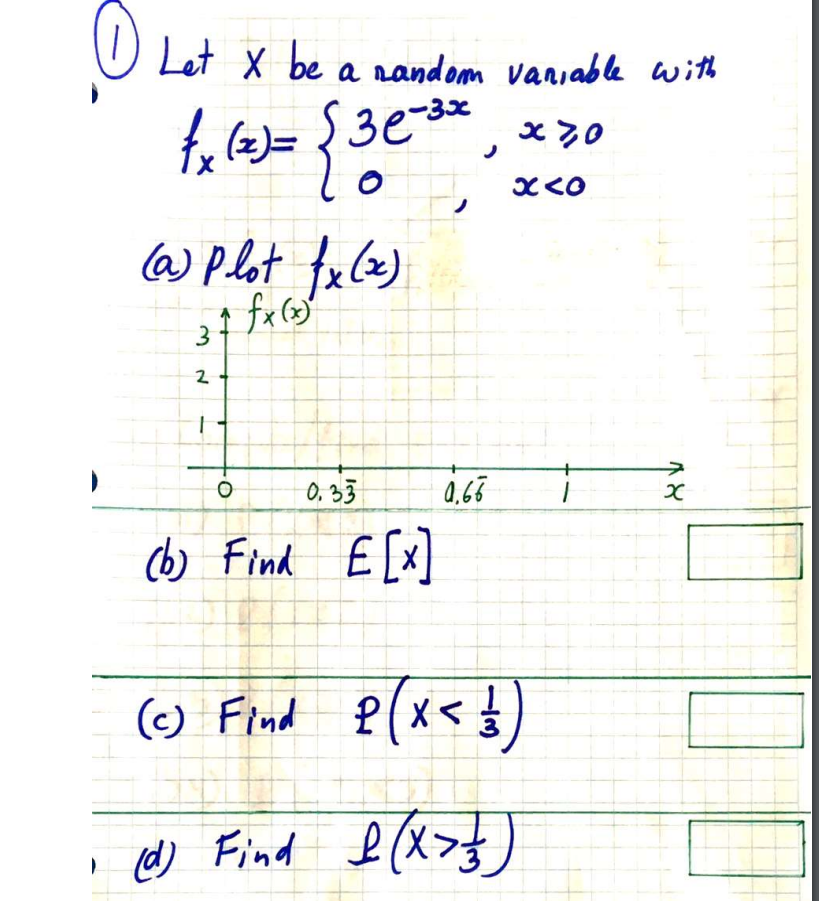 ① Let X be a random variable with
fₓ(x) = { 3e^{-3x} , x ⩾ 0
0 , x < 0
(a) Plot fₓ(x)
fₓ(x)
3
2
1
0 0.33̄ 0.66̄ 1 x
(b) Find E[X]
(c) Find P(X < 1/3)
(d) Find P(X > 1/3)